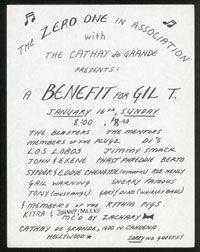 THE ZERO ONE IN ASSOCIATION
with
THE CATHAY de GRANDE
PRESENTS:
A BENEFIT FOR GIL T.
JANUARY 16TH, SUNDAY
8:00 $8.00
THE BLASTERS THE MENTORS
MEMBERS OF THE PLUGZ D.I.'S
LOS LOBOS JIMMY SMACK
JOHN & EXENE PHAST PHREDDIE BERTO
SPYDER & EDDIE ROB HENLY
GAIL WARNING SHERRY FAMOUS
TONY
& MEMBERS OF THE RYTHM PIGS
KITRA & JOHNNY
MC'D BY ZACHARY
CATHAY DE GRANDE, 1600 N. CAHUENGA
HOLLYWOOD SORRY NO GUESTS!